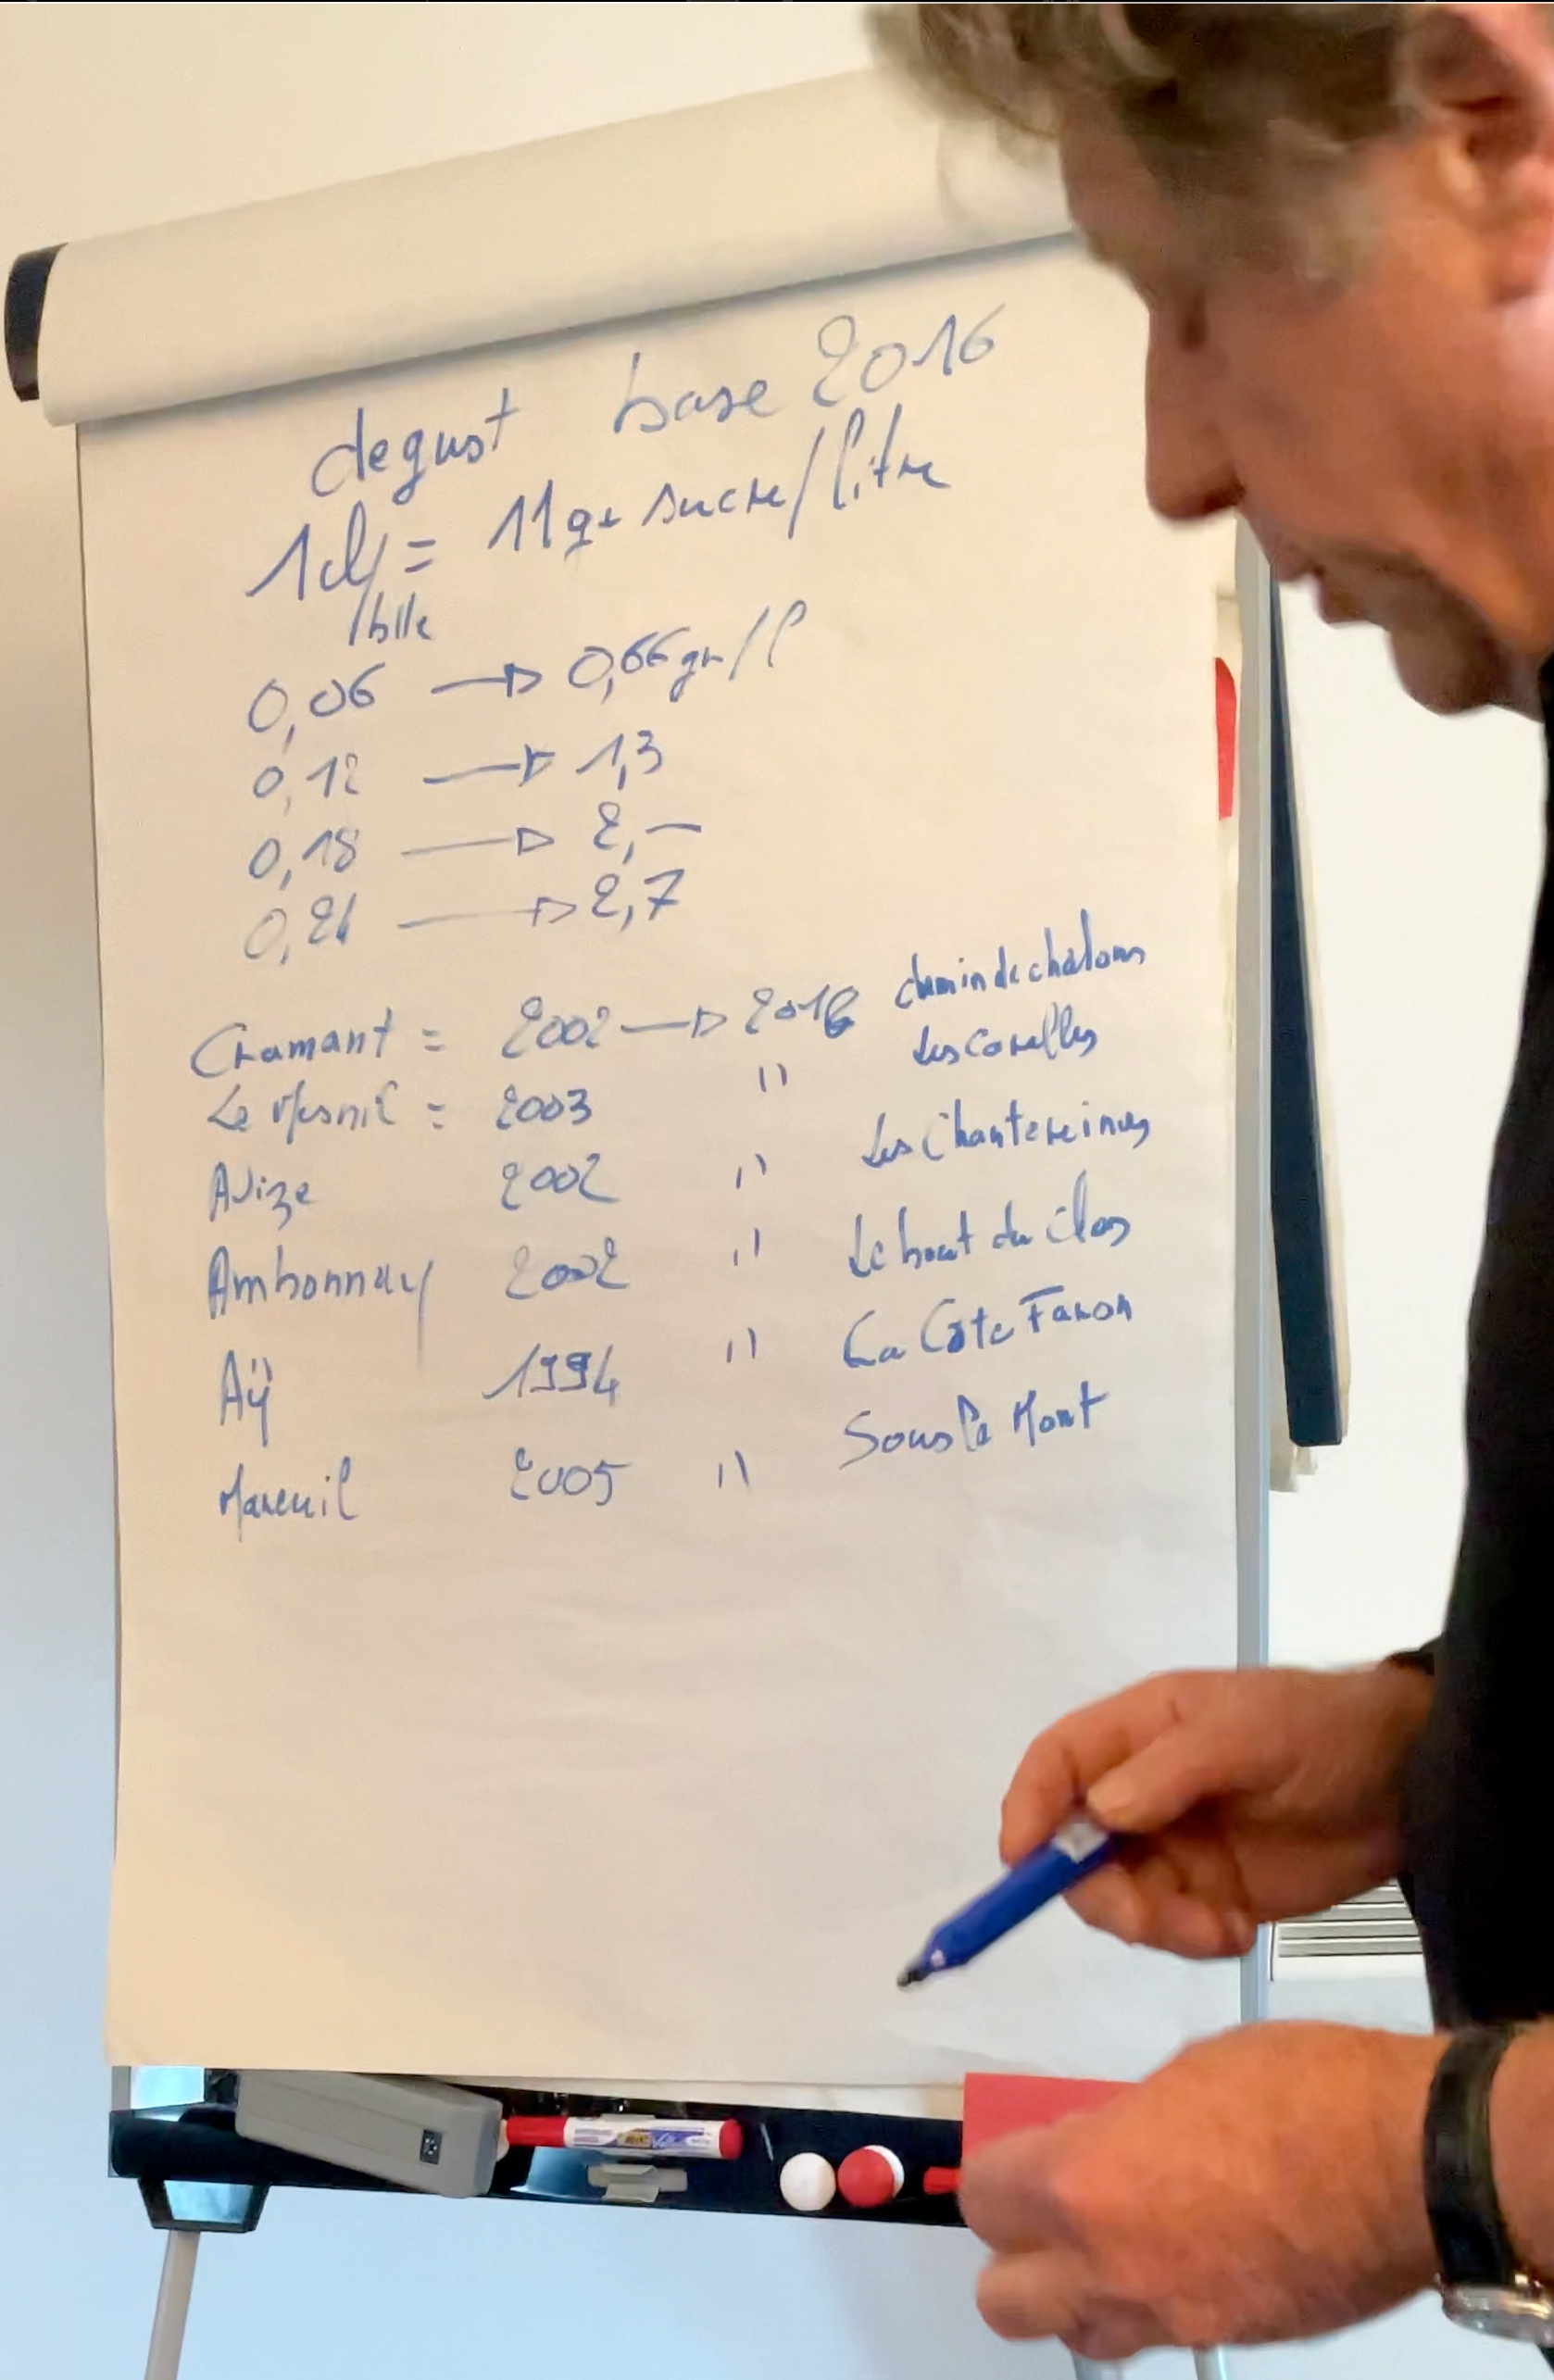 degust base 2016
1cl/blle = 11gr sucre/litre
0,06 → 0,66gr/l
0,12 → 1,3
0,18 → 2,—
0,24 → 2,7
Cramant = 2002 → 2016 chemin de chalons
Le Mesnil = 2003 " Les Carelles
Avize 2002 " Les Chantereines
Ambonnay 2002 " Le bout du Clos
Aÿ 1994 " La Côte Faron
Mareuil 2005 " Sous le Mont